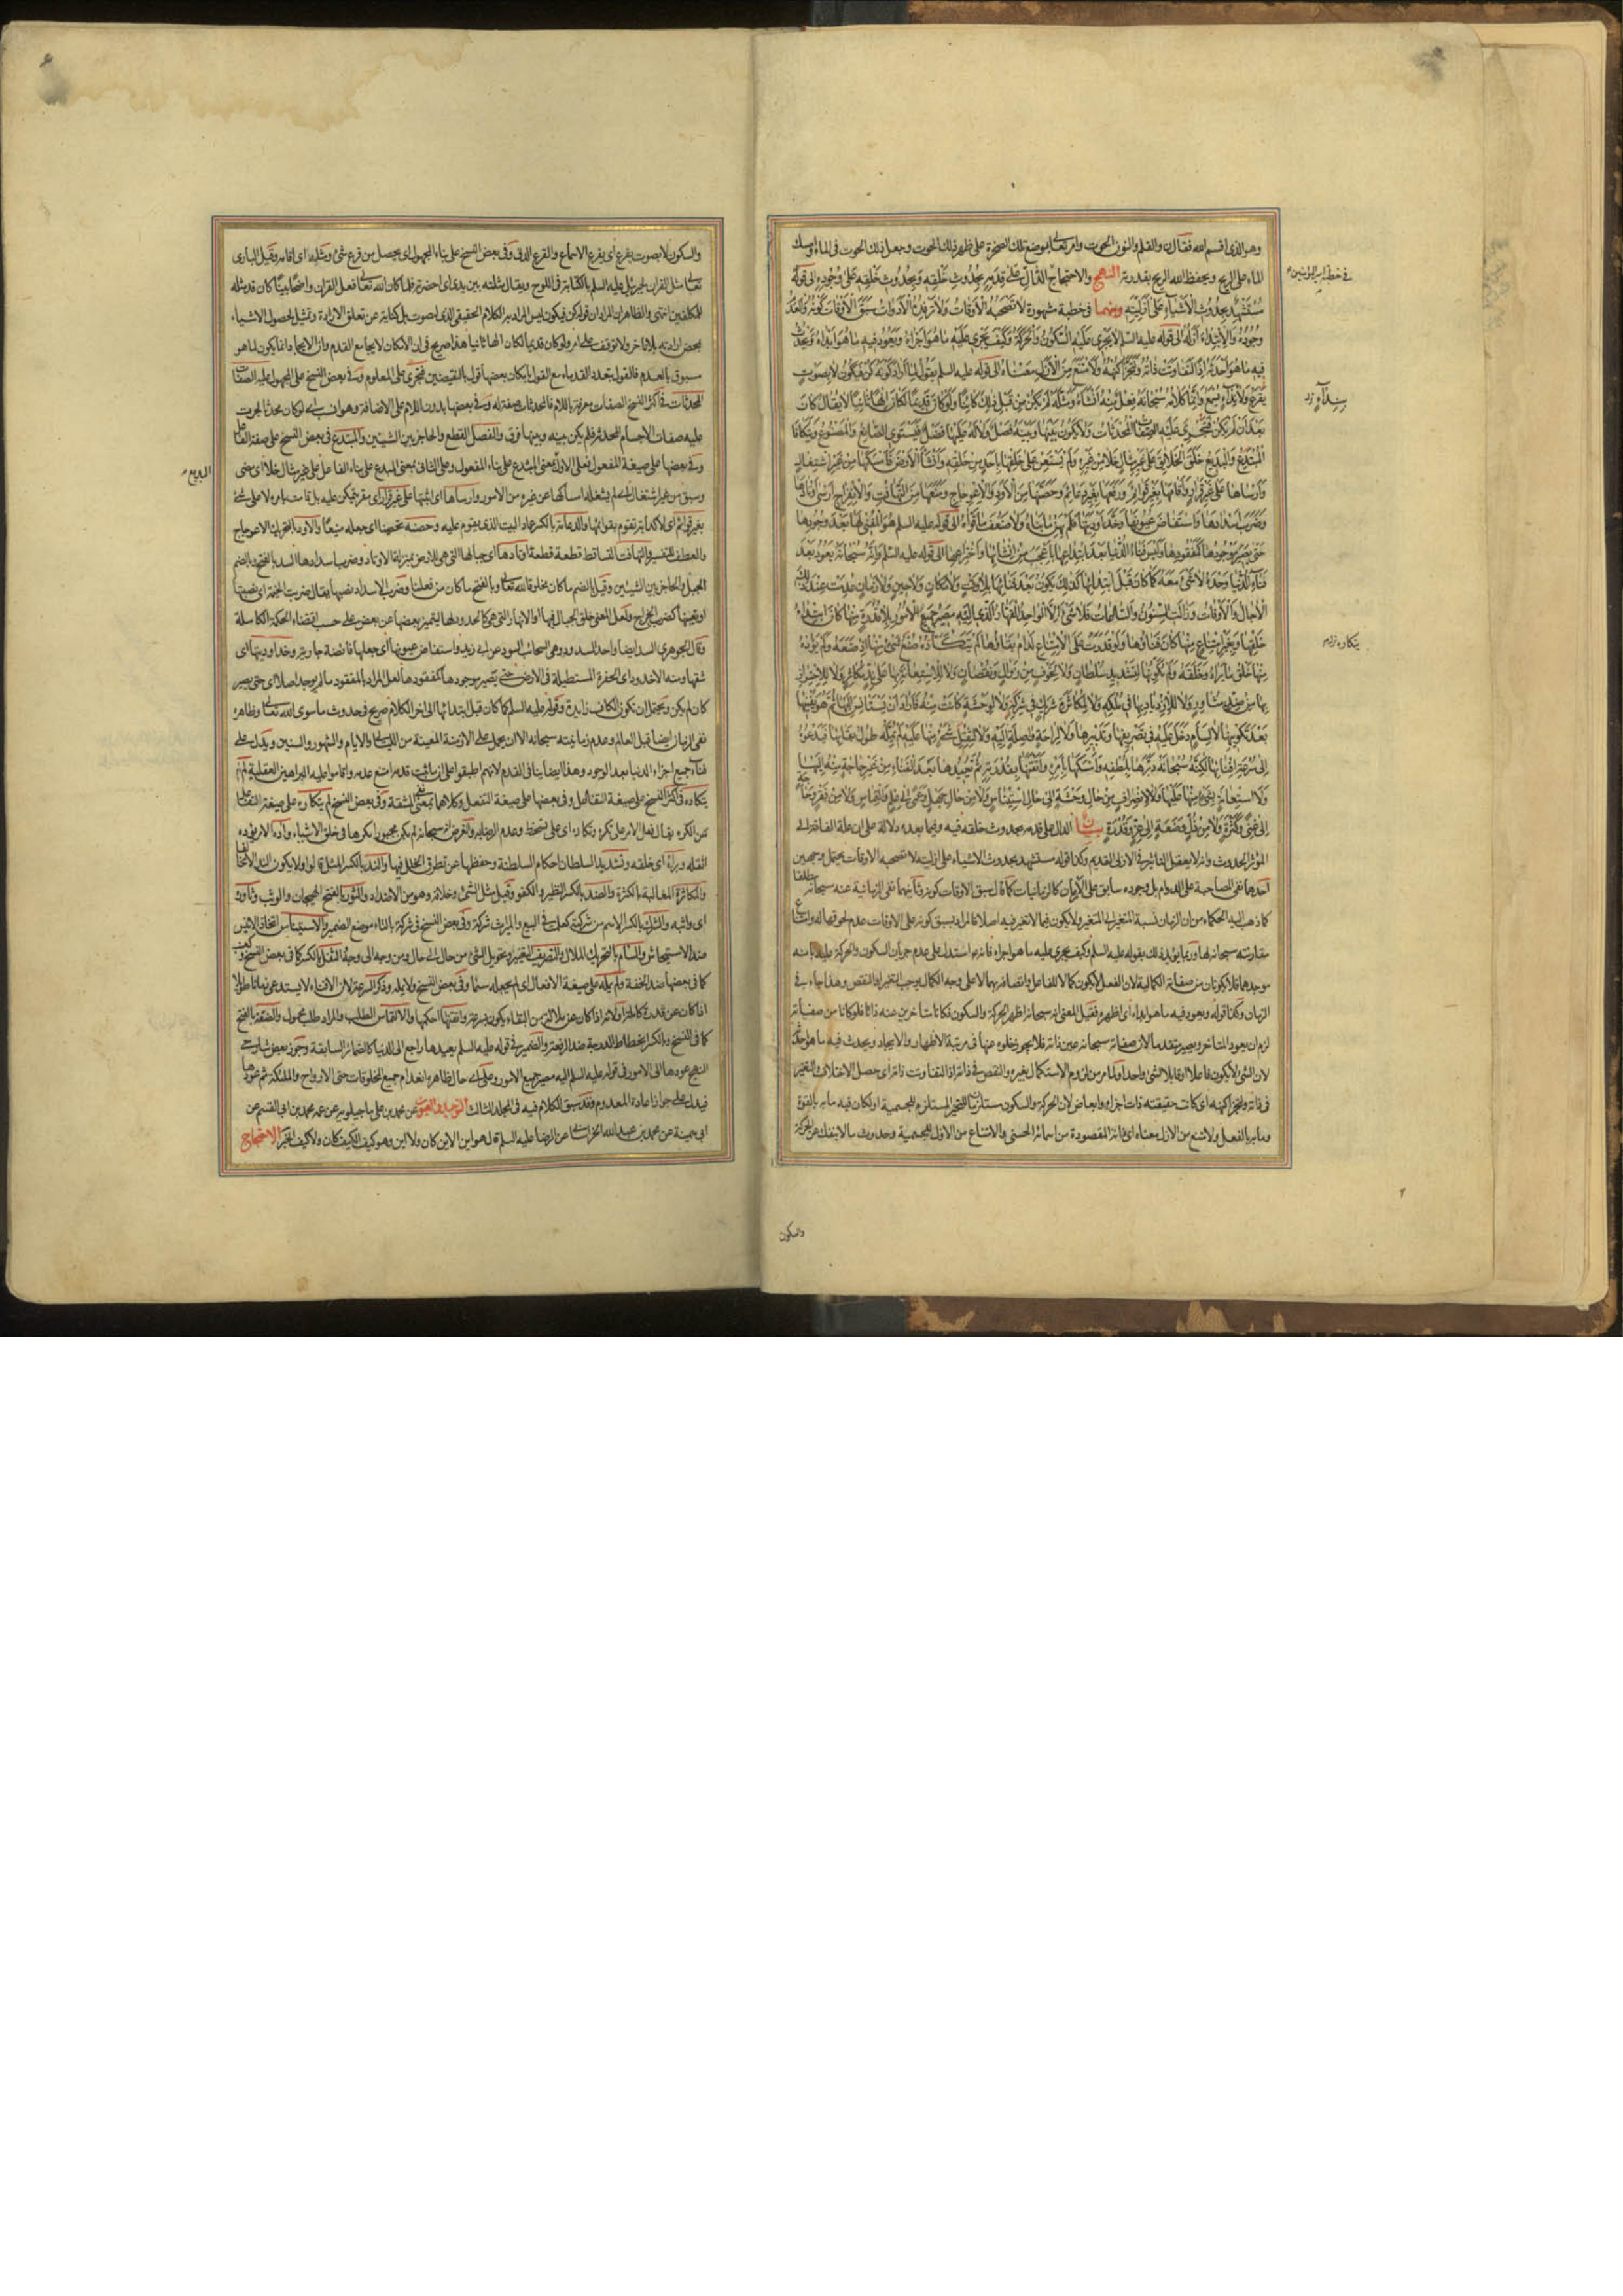 وهو الذى اقسم الله فقال ن والقلم والنون الحوت وامر تعالى بوضع تلك الصخرة على ظهر ذلك الحوت وجعل ذلك الحوت فى الماء وامسك
الماء على الريح ويحفظ الله الريح بقدرته النهج والاحتجاج الدَّالِّ عَلَى قِدَمِهِ بِحُدُوثِ خَلْقِهِ وَبِحُدُوثِ خَلْقِهِ عَلَى وُجُودِهِ الى قوله
فى خطب امير المؤمنين
مُسْتَشْهِدٌ بِحُدُوثِ الْأَشْيَاءِ عَلَى أَزَلِيَّتِهِ ومنهما فى خطبة مشهورة لَا تَصْحَبُهُ الْأَوْقَاتُ وَلَا تَرْفِدُهُ الْأَدَوَاتُ سَبَقَ الْأَوْقَاتَ كَوْنُهُ وَالْعَدَمَ
وُجُودُهُ وَالِابْتِدَاءَ أَزَلُهُ الى قوله عليه السلم لَا يَجْرِي عَلَيْهِ السُّكُونُ وَالْحَرَكَةُ وَكَيْفَ يَجْرِي عَلَيْهِ مَا هُوَ أَجْرَاهُ وَيَعُودُ فِيهِ مَا هُوَ أَبْدَاهُ وَيَحْدُثُ
فِيهِ مَا هُوَ أَحْدَثَهُ إِذًا لَتَفَاوَتَتْ ذَاتُهُ وَلَتَجَزَّأَ كُنْهُهُ وَلَامْتَنَعَ مِنَ الْأَزَلِ مَعْنَاهُ الى قوله عليه السلم يَقُولُ لِمَا أَرَادَ كَوْنَهُ كُنْ فَيَكُونُ لَا بِصَوْتٍ
يَقْرَعُ وَلَا نِدَاءٍ يُسْمَعُ وَإِنَّمَا كَلَامُهُ سُبْحَانَهُ فِعْلٌ مِنْهُ أَنْشَأَهُ وَمَثَّلَهُ لَمْ يَكُنْ مِنْ قَبْلِ ذَلِكَ كَائِنًا وَلَوْ كَانَ قَدِيمًا لَكَانَ إِلَهًا ثَانِيًا لَا يُقَالُ كَانَ
بَعْدَ أَنْ لَمْ يَكُنْ فَتَجْرِيَ عَلَيْهِ الصِّفَاتُ الْمُحْدَثَاتُ وَلَا يَكُونُ بَيْنَهَا وَبَيْنَهُ فَصْلٌ وَلَا لَهُ عَلَيْهَا فَضْلٌ فَيَسْتَوِيَ الصَّانِعُ وَالْمَصْنُوعُ وَيَتَكَافَأَ
الْمُبْتَدِعُ وَالْبَدِيعُ خَلَقَ الْخَلَائِقَ عَلَى غَيْرِ مِثَالٍ خَلَا مِنْ غَيْرِهِ وَلَمْ يَسْتَعِنْ عَلَى خَلْقِهَا بِأَحَدٍ مِنْ خَلْقِهِ وَأَنْشَأَ الْأَرْضَ فَأَمْسَكَهَا مِنْ غَيْرِ اشْتِغَالٍ
وَأَرْسَاهَا عَلَى غَيْرِ قَرَارٍ وَأَقَامَهَا بِغَيْرِ قَوَائِمَ وَرَفَعَهَا بِغَيْرِ دَعَائِمَ وَحَصَّنَهَا مِنَ الْأَوَدِ وَالِاعْوِجَاجِ وَمَنَعَهَا مِنَ التَّهَافُتِ وَالِانْفِرَاجِ أَرْسَى أَوْتَادَهَا
وَضَرَبَ أَسْدَادَهَا وَاسْتَفَاضَ عُيُونَهَا وَخَدَّ أَوْدِيَتَهَا فَلَمْ يَهِنْ مَا بَنَاهُ وَلَا ضَعُفَ مَا قَوَّاهُ الى قوله عليه السلم هُوَ الْمُفْنِي لَهَا بَعْدَ وُجُودِهَا
حَتَّى يَصِيرَ مَوْجُودُهَا كَمَفْقُودِهَا وَلَيْسَ فَنَاءُ الدُّنْيَا بَعْدَ ابْتِدَاعِهَا بِأَعْجَبَ مِنْ إِنْشَائِهَا وَاخْتِرَاعِهَا الى قوله عليه السلم وَإِنَّهُ سُبْحَانَهُ يَعُودُ بَعْدَ
فَنَاءِ الدُّنْيَا وَحْدَهُ لَا شَيْءَ مَعَهُ كَمَا كَانَ قَبْلَ ابْتِدَائِهَا كَذَلِكَ يَكُونُ بَعْدَ فَنَائِهَا بِلَا وَقْتٍ وَلَا مَكَانٍ وَلَا حِينٍ وَلَا زَمَانٍ عُدِمَتْ عِنْدَ ذَلِكَ
الْآجَالُ وَالْأَوْقَاتُ وَزَالَتِ السِّنُونَ وَالسَّاعَاتُ فَلَا شَيْءَ إِلَّا الْوَاحِدُ الْقَهَّارُ الَّذِي إِلَيْهِ مَصِيرُ جَمِيعِ الْأُمُورِ بِلَا قُدْرَةٍ مِنْهَا كَانَ ابْتِدَاءُ
خَلْقِهَا وَبِغَيْرِ امْتِنَاعٍ مِنْهَا كَانَ فَنَاؤُهَا وَلَوْ قَدَرَتْ عَلَى الِامْتِنَاعِ لَدَامَ بَقَاؤُهَا لَمْ يَتَكَاءَدْهُ صُنْعُ شَيْءٍ مِنْهَا إِذْ صَنَعَهُ وَلَمْ يَؤُدْهُ
مِنْهَا خَلْقُ مَا بَرَأَهُ وَخَلَقَهُ وَلَمْ يُكَوِّنْهَا لِتَشْدِيدِ سُلْطَانٍ وَلَا لِخَوْفٍ مِنْ زَوَالٍ وَنُقْصَانٍ وَلَا لِلِاسْتِعَانَةِ بِهَا عَلَى نِدٍّ مُكَاثِرٍ وَلَا لِلِاحْتِرَازِ
بِهَا مِنْ ضِدٍّ مُثَاوِرٍ وَلَا لِلِازْدِيَادِ بِهَا فِي مُلْكِهِ وَلَا لِمُكَاثَرَةِ شَرِيكٍ فِي شِرْكِهِ وَلَا لِوَحْشَةٍ كَانَتْ مِنْهُ فَأَرَادَ أَنْ يَسْتَأْنِسَ إِلَيْهَا ثُمَّ هُوَ يُفْنِيهَا
بَعْدَ تَكْوِينِهَا لَا لِسَأَمٍ دَخَلَ عَلَيْهِ فِي تَصْرِيفِهَا وَتَدْبِيرِهَا وَلَا لِرَاحَةٍ وَاصِلَةٍ إِلَيْهِ وَلَا لِثِقْلِ شَيْءٍ مِنْهَا عَلَيْهِ لَمْ يُمِلَّهُ طُولُ بَقَائِهَا فَيَدْعُوَهُ
إِلَى سُرْعَةِ إِفْنَائِهَا لَكِنَّهُ سُبْحَانَهُ دَبَّرَهَا بِلُطْفِهِ وَأَمْسَكَهَا بِأَمْرِهِ وَأَتْقَنَهَا بِقُدْرَتِهِ ثُمَّ يُعِيدُهَا بَعْدَ الْفَنَاءِ مِنْ غَيْرِ حَاجَةٍ مِنْهُ إِلَيْهَا
وَلَا اسْتِعَانَةٍ بِشَيْءٍ مِنْهَا عَلَيْهَا وَلَا لِانْصِرَافٍ مِنْ حَالِ وَحْشَةٍ إِلَى حَالِ اسْتِئْنَاسٍ وَلَا مِنْ حَالِ جَهْلٍ وَعَمًى إِلَى عِلْمٍ وَالْتِمَاسٍ وَلَا مِنْ فَقْرٍ وَحَاجَةٍ
إِلَى غِنًى وَكَثْرَةٍ وَلَا مِنْ ذُلٍّ وَضَعَةٍ إِلَى عِزٍّ وَقُدْرَةٍ بيان الدال على قدمه بحدوث خلقه فيه وفيما بعده دلالة على ان علة الفاقة الى
المؤثر الحدوث وانه لا يعقل التاثير فى الازلى القديم وكذا قوله مستشهد بحدوث الاشياء على ازليته لا تصحبه الاوقات يحتمل وجهين
احدهما نفى المصاحبة على الدوام بل وجوده سابق على الازمان كالزمانيات كما قال سبق الاوقات كونه وثانيهما نفى الزمانية عنه سبحانه مطلقا
كما ذهب اليه الحكماء من ان الزمان نسبة المتغير الى المتغير ولا يكون فيما لا تغير فيه اصلا فالمراد بسبق كونه على الاوقات عدم لحوقها له وامتناع
مقارنته سبحانه لها وربما يؤيد ذلك بقوله عليه السلم وكيف يجرى عليه ما هو اجراه فانه استدل على عدم جريان السكون والحركة عليه بانه
موجدهما فلا يكونان من صفاته الكمالية لان الفعل لا يكون كمالا للفاعل واتصافه بهما لا على وجه الكمال يوجب التغير او النقص وهذا جاء فى
الزمان وكذا قوله ويعود فيه ما هو ابداه اى اظهره فقيل المعنى انه سبحانه اظهر الحركة والسكون فكانا متاخرين عنه ذاتا فلو كانا من صفاته
لزم ان يعود المتاخر ويصير متقدما لان صفاته سبحانه عين ذاته فلا يجوز خلوه عنها فى مرتبة الاظهار والايجاد ويحدث فيه ما هو احدثه
لان الشئ لا يكون فاعلا وقابلا لشئ واحد او لما مر من لزوم الاستكمال بغيره والنقص فى ذاته اذا لتفاوتت ذاته اى حصل الاختلاف والتغير
فى ذاته ولتجزا كنهه اى كانت حقيقته ذات اجزاء وابعاض لان الحركة والسكون مستلزمان للتحيز المستلزم للجسمية او لكان فيه ما به بالقوة
وما به بالفعل ولامتنع من الازل معناه اى ذاته المقصودة من اسمائه الحسنى والامتناع من الازل للجسمية وحدوث ما لا ينفك عن الحركة
والسكون
والسكون لا بصوت يقرع اى يقرع الاسماع والقرع الدق وفى بعض النسخ على بناء المجهول اى يحصل من قرع شئ ومثله اى اقامه وقيل البارى
تعالى مثل القران لجبرئيل عليه السلم بالكتابة فى اللوح ويقال مثلته بين يدى اى احضرته فلما كان الله تعالى فعل القران واضحا بينا كان قد مثله
للمكلفين انتهى والظاهر ان المراد ان قوله كن فيكون ليس المراد به الكلام الحقيقى الذى له صوت بل كناية عن تعلق الارادة وتمثيل لحصول الاشياء
بمحض ارادته بلا تاخر ولا توقف على امر ولو كان قديما لكان الها ثانيا هذا صريح فى ان الامكان لا يجامع القدم وان الايجاد انما يكون لما هو
مسبوق بالعدم فالقول بتعدد القدماء مع القول بامكان بعضها قول بالنقيضين فتجرى على المعلوم وفى بعض النسخ على المجهول عليه الصفات
المحدثات فى اكثر النسخ الصفات معرفة باللام فالمحدثات صفة له وفى بعضها بدون اللام على الاضافة وهو انسب اى لو كان محدثا لجرت
عليه صفات الاجسام المحدثة فلم يكن بينه وبينها فرق والفصل القطع والحاجز بين الشيئين والمبتدع فى بعض النسخ على صيغة الفاعل
وفى بعضها على صيغة المفعول فعلى الاول البديع بمعنى المبدع على بناء المفعول وعلى الثانى بمعنى المبدع على بناء الفاعل على غير مثال خلا اى مضى
البديع
وسبق من غير اشتغال اى لم يشغله امساكها عن غيره من الامور وارساها اى اثبتها على غير قرار اى مقر يتمكن عليه بل قامت بامره لا على شئ
بغير قوائم اى لا كدابة تقوم بقوائمها والدعامة بالكسر عماد البيت الذى يقوم عليه وحصنه تحصينا اى جعله منيعا والاود بالتحريك الاعوجاج
والعطف للتفسير والتهافت التساقط قطعة قطعة اوتادها اى جبالها التى هى للارض بمنزلة الاوتاد وضرب اسدادها السد بالفتح وبالضم
الجبل والحاجز بين الشيئين وقيل بالضم ما كان مخلوقا لله تعالى وبالفتح ما كان من فعلنا وضرب الاسداد نصبها يقال ضربت الخيمة اى نصبتها
او تعيينها كضرب الخراج ولعل المعنى خلق الجبال فيها والانهار التى هى كالحدود لها ليتميز بعضها عن بعض على حسب اقتضاء الحكمة الكاملة
وقال الجوهرى السد ايضا واحد السدود وهى السحائب السود عن ابى زيد واستفاض عيونها اى جعلها فائضة جارية وخد اوديتها اى
شقها ومنه الاخدود اى الحفرة المستطيلة فى الارض حتى يصير موجودها كمفقودها لعل المراد بالمفقود ما لم يوجد اصلا اى حتى يصير
كان لم يكن ويحتمل ان تكون الكاف زايدة وقوله عليه السلم كما كان قبل ابتدائها الى اخر الكلام صريح فى حدوث ما سوى الله تعالى وظاهره
نفى الزمان ايضا قبل العالم وعدم زمانيته سبحانه الا ان يحمل على الازمنة المعينة من الليالى والايام والشهور والسنين ويدل على
فناء جميع اجزاء الدنيا بعد الوجود وهذا ايضا ينافى القدم لانهم اطبقوا على ان ما ثبت قدمه امتنع عدمه واقاموا عليه البراهين العقلية لم
يتكاءده فى اكثر النسخ على صيغة التفاعل وفى بعضها على صيغة التفعل وكلاهما بمعنى المشقة وفى بعض النسخ لم يتكاره على صيغة التفاعل
من الكره يقال فعل الامر على تكره وتكاره اى على تسخط وعدم الرضا به والغرض انه سبحانه لم يكن مجبورا مكرها فى خلق الاشياء واده الامر يؤده
اثقله وبراه اى خلقه وتشديد السلطان احكام السلطنة وحفظها عن تطرق الخلل فيها والند بالكسر المثل قالوا ولا يكون الند الا مخالفا
والمكاثرة المغالبة بالكثرة والضد بالكسر النظير والكفو وقيل مثل الشئ وخلافه وهو من الاضداد والثور بالفتح الهيجان والوثب وثاوره
اى واثبه والشرك بالكسر الاسم من شركته كعلمت فى البيع والميراث شركة وفى بعض النسخ فى شركة بالتاء موضع الضمير والاستيناس اتخاذ الانيس
ضد الاستيحاش والسام بالتحريك الملال والتصريف التغيير وتحويل الشئ من حال الى حال ومن وجه الى وجه والثقل بالكسر كما فى بعض النسخ وكعنب
كما فى بعضها ضد الخفة ولم يمله على صيغة الافعال اى لم يجعله سئما وفى بعض النسخ ولا يمله وذكر السرعة لان الافناء لا يستدعى زمانا طويلا
اذا كان عن قدرة كاملة او لانه اذا كان عن ملالة من البقاء يكون بسرعة واتقنها احكمها والالتماس الطلب والمراد طلب مجهول والضعة بالفتح
كما فى النسخ وبالكسر انحطاط الدرجة ضد الرفعة والضمير فى قوله عليه السلم يعيدها راجع الى الدنيا كالضمائر السابقة وجوز بعض شارحى
النهج عودها الى الامور فى قوله عليه السلم اليه مصير جميع الامور وعلى اى حال ظاهره انعدام جميع المخلوقات حتى الارواح والملئكة ثم عودها
فيدل على جواز اعادة المعدوم وقد سبق الكلام فيه فى المجلد الثالث التوحيد والعيون عن محمد بن على ماجيلويه عن عمه محمد بن ابى القسم عن
ابى سمينة عن محمد بن عبد الله الخراسانى عن الرضا عليه السلم قال هو اين الاين كان ولا اين وهو كيف الكيف كان ولا كيف الخبر الاحتجاج